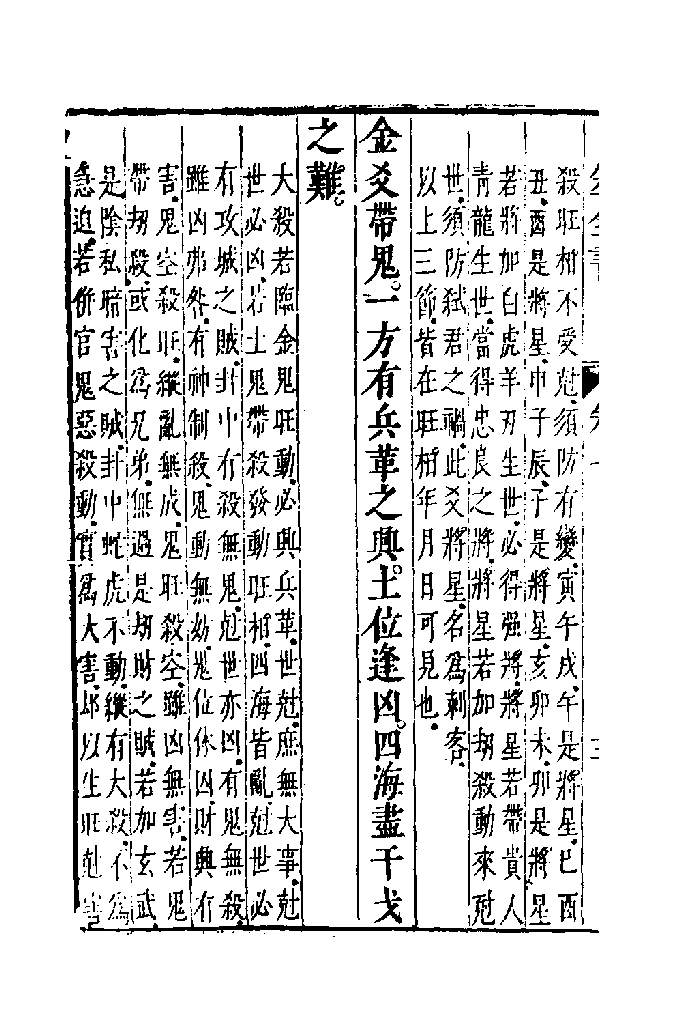 殺旺相不受尅須防有變寅午戌午是將星巳酉
丑酉是將星申子辰子是將星亥卯未卯是將星
若將加白虎羊刃生世必得强將將星若帶貴人
青龍生世當得忠良之將將星若加刼殺動來尅
世須防弑君之禍此爻將星名爲刺客
以上三節皆在旺相年月日可見也
金爻帶鬼一方有兵革之興土位逢凶四海盡干戈
之難
大殺若臨金鬼旺動必興兵革世尅庶無大事尅
世必凶若土鬼帶殺發動旺相四海皆亂尅世必
有攻城之賊卦中有殺無鬼尅世亦凶有鬼無殺
雖凶弗咎有神制殺鬼動無妨鬼位休囚財興有
害鬼空殺旺縱亂無成鬼旺殺空雖凶無害若鬼
帶刼殺或化爲兄弟無過是刼財之賊若加玄武
是陰私暗害之賊卦中蛇虎不動縱有大殺不爲
急迫若併官鬼惡殺動實爲大害却以生旺尅